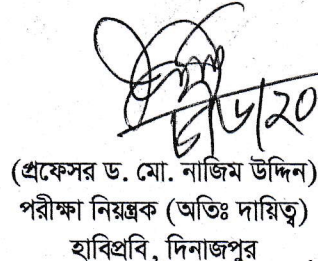 ৮/৬/২০
(প্রফেসর ড. মো. নাজিম উদ্দিন)
পরীক্ষা নিয়ন্ত্রক (অতিঃ দায়িত্ব)
হাবিপ্রবি, দিনাজপুর